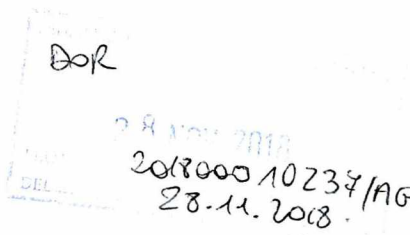 DOR
28 NOV 2018
201800010237/AG
28.11.2018.